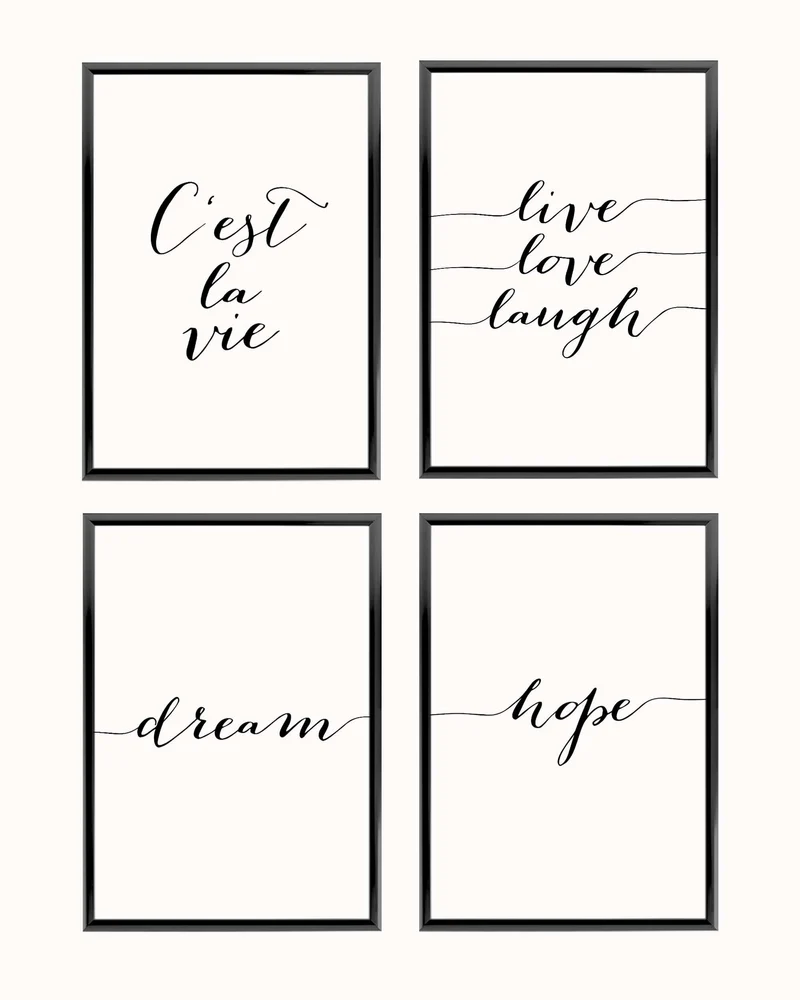 C'est
la
vie
live
love
laugh
dream
hope